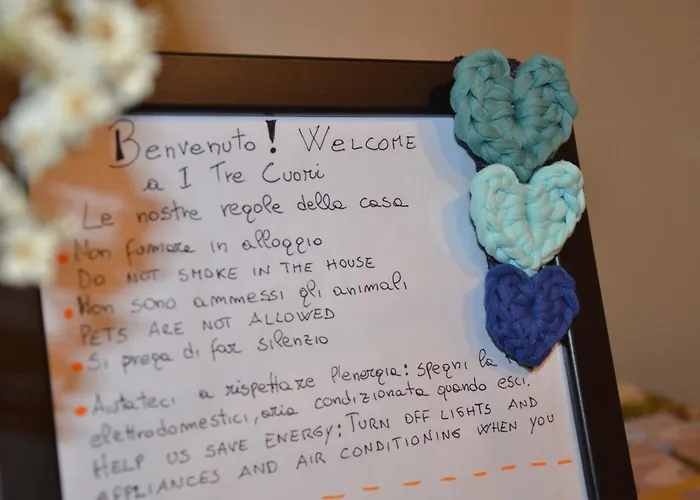 Benvenuto! WELCOME
a I Tre Cuori
Le nostre regole della casa
Non fumare in alloggio
DO NOT SMOKE IN THE HOUSE
Non sono ammessi gli animali
PETS ARE NOT ALLOWED
Si prega di far silenzio
Aiutateci a rispettare l'energia: spegni la
elettrodomestici, aria condizionata quando esci.
HELP US SAVE ENERGY: TURN OFF LIGHTS AND
APPLIANCES AND AIR CONDITIONING WHEN YOU